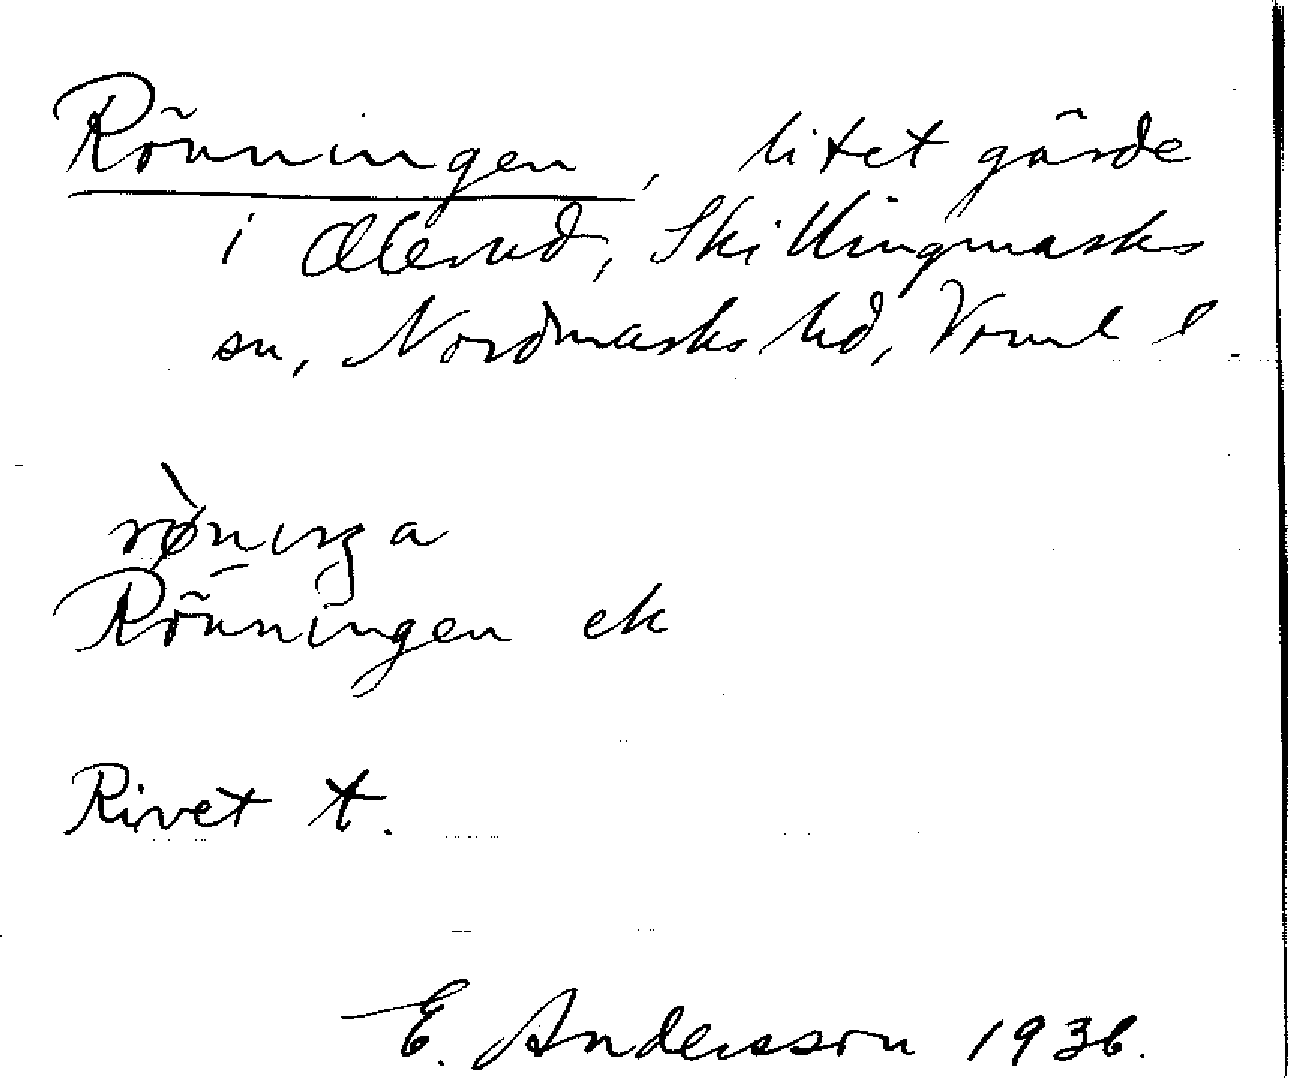 Rönningen, litet gärde
i Ålerud, Skillingmarks
sn, Nordmarks hd, Vrml l
røniŋa
Rönningen ek
Rivet t.
E. Andersson 1936.